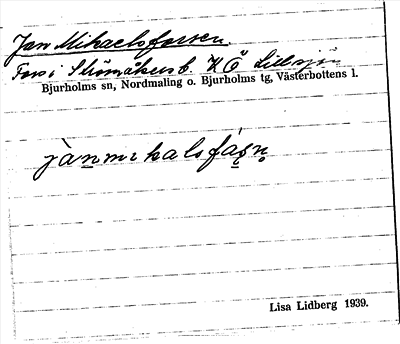 Jan Mikaelsforsen
Fors i Strömåkers b. K Ö Lillsjön
Bjurholms sn, Nordmaling o. Bjurholms tg, Västerbottens l.
jànmikalsfáṣṇ
Lisa Lidberg 1939.